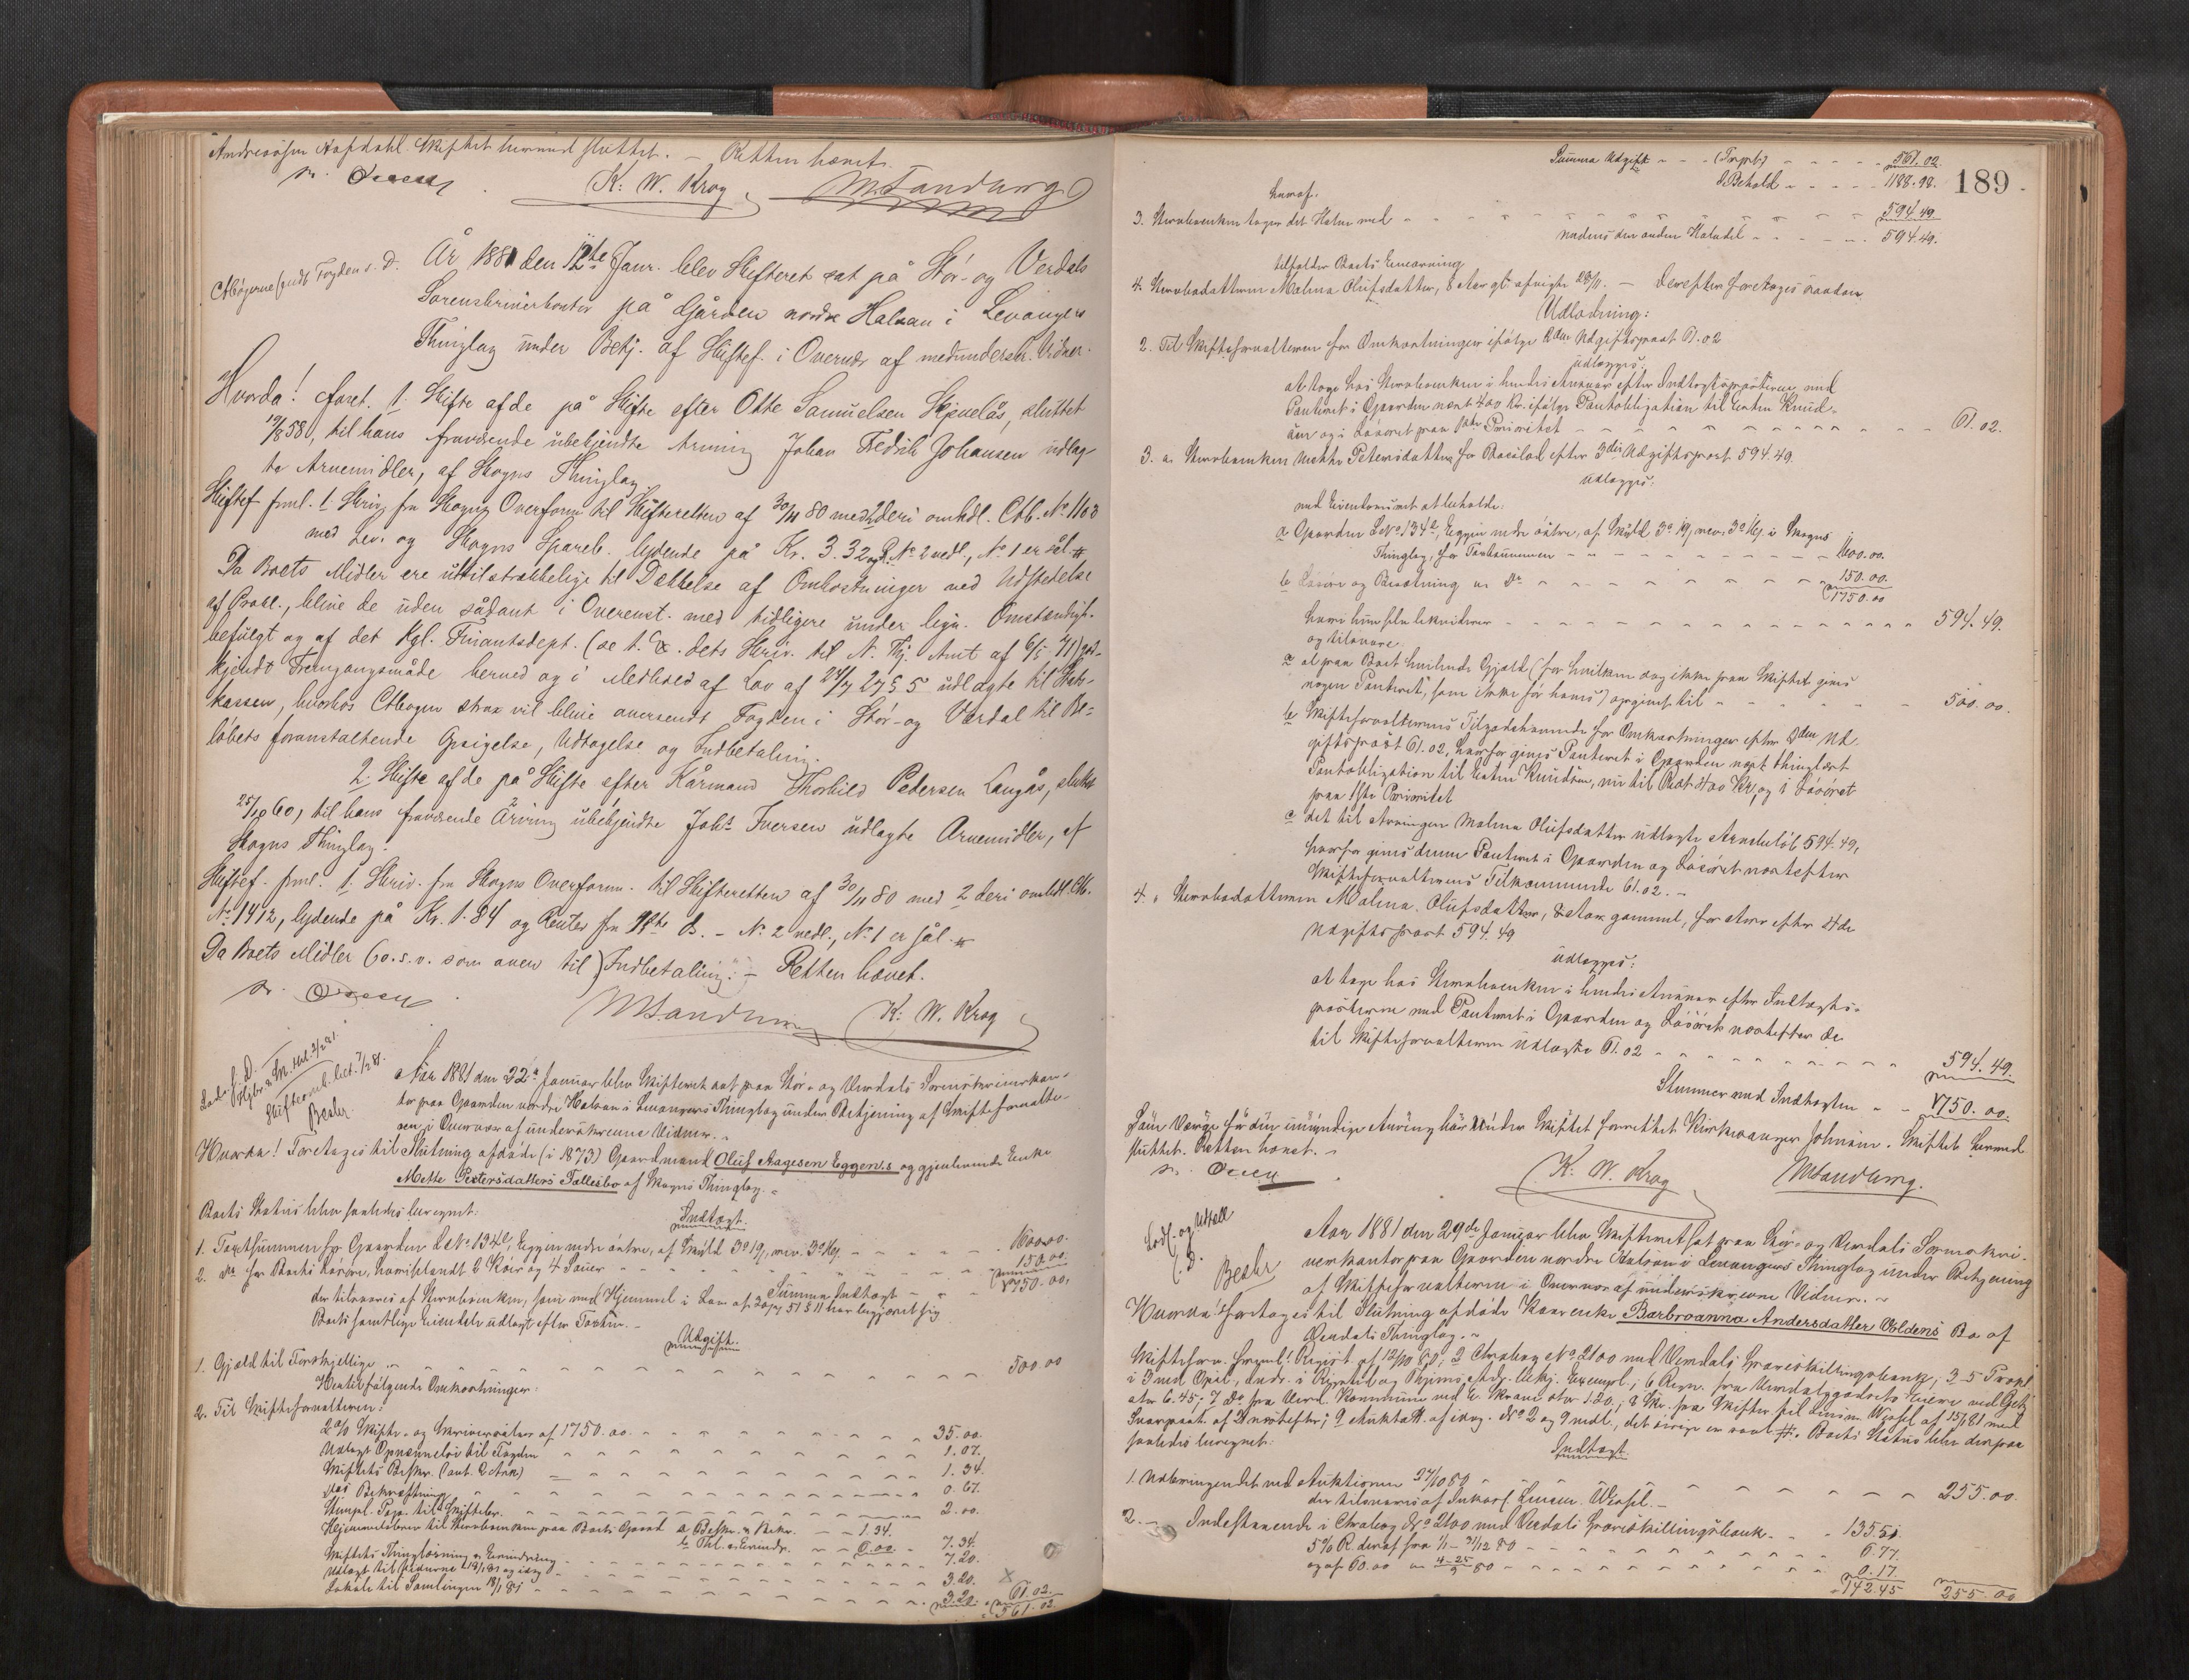 Andreasen Hofdahl. Skiftet hermed sluttet. — Retten hævet.
K: W. Krog MSandberg
Ctbøgerne sendt Fogden s. D.
År 1881 den 12te Janr. blev Skifteret sat på Stør- og Verdals
Sorenskriverkontor på Gården nordre Halsan i Levangers
Thinglag under Betj. af Skiftef. i Overvær af medunderskr. Vidner.
Hvorda! foret. 1. Skifte afde på Skifte efter Otte Samuelsen Skjenelås, sluttet
19/8 58, til hans fraværende ubekjendte Arving Johan Fredrik Johansen udlag-
te Arvemidler, af Skogns Thinglag.
Skiftef. freml. 1. Skriv. fra Skogns Overform. til Skifteretten af 30/11 80 med 2 deri omhdl. Ctb. No. 1163
med Lev. og Skogns Spareb. lydende på Kr. 3.32 og No 2 vedl., No 1 er sål.
Da Boets Midler ere utilstrækkelige til Dækkelse af Omkostninger ved Udstedelse
af Procl., blive de uden sådant i Overenst. med tidligere under lign. Omstændigh.
befulgt og af det Kgl. Finantsdept. (se t. Ex. dets Skriv. til N. Thj. Amt af 6/5 71) god-
kjendt Fremgangsmåde herved og i Medhold af Lov af 24/7 27 § 5 udlagte til Stats-
kassen, hvorhos Ctbogen strax vil blive oversendt Fogden i Stør- og Værdal til Be-
løbets foranstaltende Opsigelse, Udtagelse og Indbetaling.
2. Skifte afde på Skifte efter Kårmand Thorkild Pedersen Langås, sluttet
25/10 60, til hans fraværende Arving ubekjendte Johs Iversen udlagte Arvemidler, af
Skogns Thinglag.
Skiftef. freml. 1. Skriv. fra Skogns Overform. til Skifteretten af 30/11 80 med 2 deri omhdl. Ctb.
No 1412, lydende på Kr. 1.84 og Renter fra ds. - No 2 vedl., No 1 er sål.
Da Boets Midler (o.s.v. som oven til) Indbetaling. - Retten hævet.
MSandberg K: W. Krog
s. D.
Beskr.
Aar 1881 den 22de Januar blev Skifteret sat paa Stør- og Værdals Sorenskriverkon-
tor paa Gaarden nordre Halsan i Levangers Thinglag under Betjening af Skifteforvalte-
ren i Overvær af underskrevne Vidner. -
Hvorda! Foretages til Slutning afdøde (i 1873) Gaardmand Oluf Aagesen Eggens og gjenlevende Enke
Mette Petersdatters Fællesbo af Skogns Thinglag. -
Boets Status blev saaledes beregnet:
Indtægt.
1. Taxtsummen for Gaarden LNo 134a, Eggen nedre østre, af Skyld 3 o 19, rev. 3 o - - - 1600.00.
2. do for Boets Løsøre, hvoriblandt 2 Køer og 4 Sauer - - - 150.00.
Summa Indtægt - - 1750.00.
der tilsvares af Stervboenken, som med Hjemmel i Lov af 30/7 51 § 11 har begjæret sig
Boets samtlige Eiendele udlagt efter Taxten. -
Udgift.
1. Gjæld til Forskjellige - - - 500.00
Hertil følgende Omkostninger:
2. Til Skifteforvalteren:
2 % Skifte- og Skriversalær af 1750.00 - - - 35.00.
Udlagt Opnævnelse til Fogden - - - 1.07.
Skiftets Beskr. (ant. 2 Ark) - - - 1.34.
Dets Bekræftning - - - 0.67.
Stempl. Papir til Skiftebr. - - - 2.00.
Hjemmelsbrev til Stervboenken paa Boets Gaard a Beskr. & Bekr. - - 1.34.
b Thl. & Erindr. - - 6.00 - 7.34.
Skiftets Thinglæsning & Erindring - - - 7.20.
Udlagt til Vidnerne 18/1 81 og idag - - - 3.20.
Lokale til Samlingen 18/1 81 - - - 3.20. 61.02.
561.02.
189.
Summa Udgift - - (Transp.) - - - 561.02.
I Behold - - - 1188.98.
heraf.
3. Stervboenken tager det Halve med - - - 594.49
medens den anden Halvdel - - - 594.49.
tilfalder Boets Enearving
4. Stervbodatteren Malena Olufsdatter, 8 Aar gl. afvigte 28/11. — Derefter foretages saadan
Udlodning:
2. Til Skifteforvalteren for Omkostninger ifølge 2den Udgiftspost 61.02
udlægges:
at tage hos Stervboenken i hendes Ansvar efter Indtægtsposterne med
Panteret i Gaarden næst 400 Kr. ifølge Pantobligation til Enken Knud-
sen og i Løsøret paa 1ste Prioritet - - - 61.02.
3. a Stervboenken Mette Petersdatter for Boeslod efter 3die Udgiftspost 594.49.
udlægges:
med Eiendommet at beholde:
a Gaarden LNo 134a, Eggen nedre østre, af Skyld 3 o 19, rev. 3 o i Skogns
Thinglag, for Taxtsummen - - - 1600.00.
b Løsøre og Besætning - do - - - 150.00.
1750.00
heri hun selv likviderer - - - 594.49.
og tilsvare.
a al paa Boet heftende Gjæld (for hvilken dog ikke paa Skiftet gives
nogen Panteret, som ikke før haves) opgivet til - - - 500.00.
b Skifteforvalterens Tilgodehavende for Omkostninger efter 2den Ud-
giftspost 61.02, hvorfor gives Panteret i Gaarden næst thinglæst
Pantobligation til Enken Knudsen, nu til Rest 400 Kr, og i Løsøret
paa 1ste Prioritet
c det til Arvingen Malena Olufsdatter udlagte Arvebeløb 594.49,
hvorfor gives denne Panteret i Gaarden og Løsøret næstefter
Skifteforvalterens Tilkommende 61.02. -
4. Stervbodatteren Malena Olufsdatter, 8 Aar gammel, for Arv efter 4de
Udgiftspost 594.49
udlægges:
at tage hos Stervboenken i hendes Ansvar efter Indtægts-
posterne med Panteret i Gaarden og Løsøret næstefter de
til Skifteforvalteren udlagte 61.02 - - - 594.49.
Stemmer med Indtægten - - 1750.00.
Som Værge for den umyndige Arving har under Skiftet forrettet Kirkesanger Johnsen. Skiftet hermed
sluttet. Retten hævet. -
K. W. Krog MSandberg.
s. D.
Beskr
Aar 1881 den 29de Januar blev Skifteret sat paa Stør- og Værdals Sorenskri-
verkontor paa Gaarden nordre Halsan i Levangers Thinglag under Betjening
af Skifteforvalteren i Overvær af underskrevne Vidner. -
Hvorda! foretages til Slutning afdøde Kaarenke Barbroanna Andersdatter Voldens Bo af
Værdals Thinglag. -
Skifteforv. freml. 1 Regist. af 12/10 80; 2 Ctrabog No 2100 med Værdals Spareskillingsbank; 3-5 Procl.
Svarpaat. af næstefter; 9 Auktakt. af idag. No 2 og 9 vedl., det øvrige er saal. Boets Status blev derpaa
saaledes beregnet:
Indtægt.
1. Udbringendet ved Auktionen 27/10 80 - - - 255.00.
der tilsvares af Inkass. Lensm. Wessel. -
2. - Indestaaende i Ctrabog No 2100 med Værdals Spareskillingsbank - - 135.51.
5% R. deraf fra 1/1 - 31/12 80 - - - 6.77.
og af 60.00 - - - 0.17.
142.45 255.00